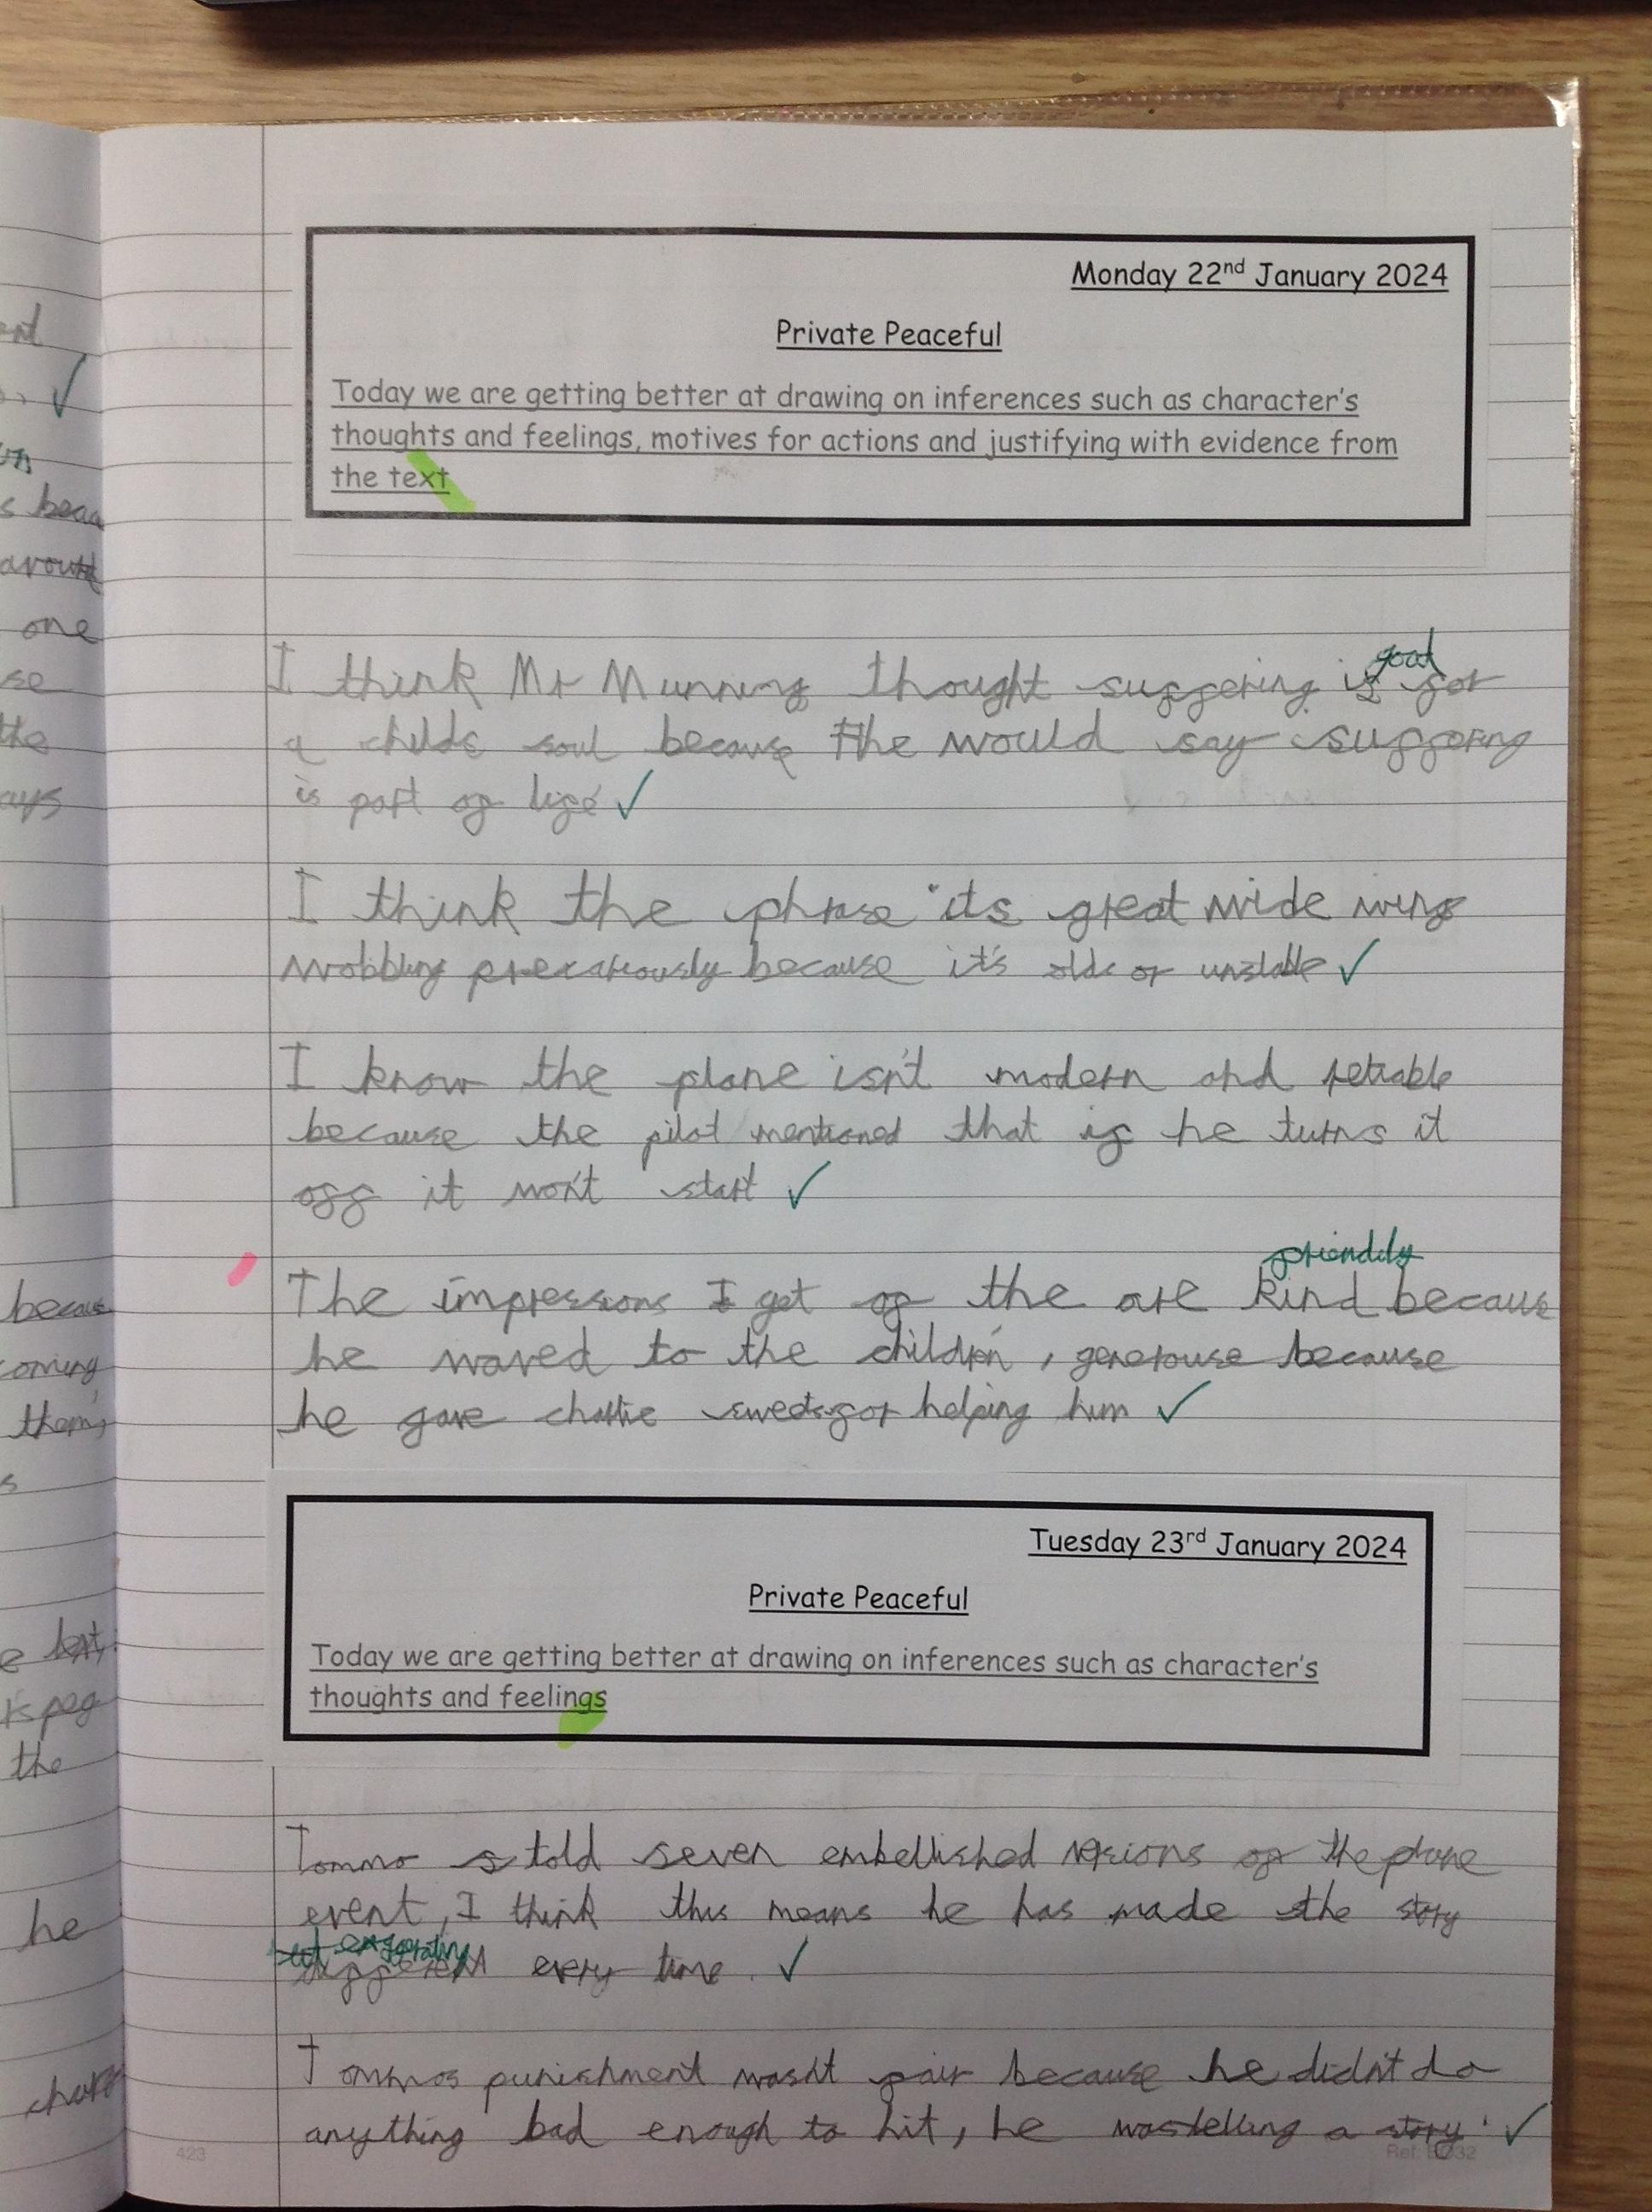 Monday 22nd January 2024
Private Peaceful
Today we are getting better at drawing on inferences such as character's
thoughts and feelings, motives for actions and justifying with evidence from
the text
good
I think Mr Munning thought suffering is for
a childs soul because the would say suffering
is part of life ✓
I think the phrase "its great wide wings
wobbling precariously because it's old or unstable ✓
I know the plane isn't modern and reliable
because the pilot mentioned that if he turns it
off it won't start ✓
friendly
The impressions I get of the are kind because
he waved to the children, generouse because
he gave charlie sweets for helping him ✓
Tuesday 23rd January 2024
Private Peaceful
Today we are getting better at drawing on inferences such as character's
thoughts and feelings
Tommo told seven embellished versions of the plane
event, I think this means he has made the story
every time. ✓
Tommos punishment wasn't fair because he didn't do
anything bad enough to hit, he was telling a story. ✓
423
he
the
because
one